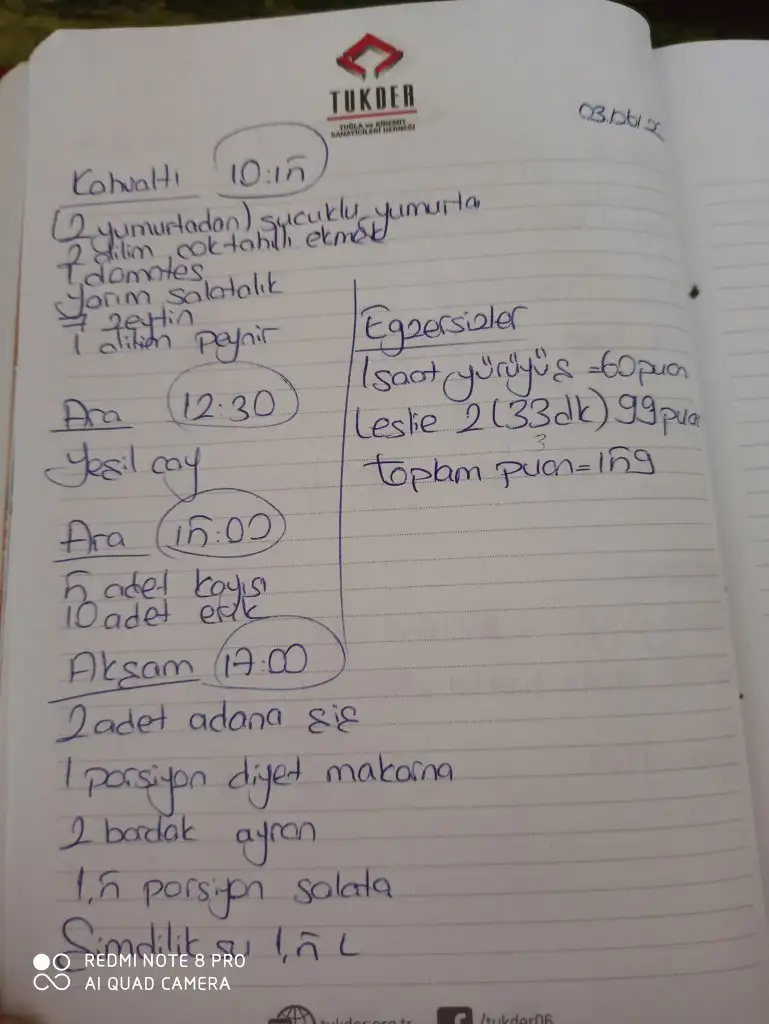 TUKDER
TUĞLA ve KİREMİT
SANAYİCİLERİ DERNEĞİ
Kahvaltı 10:15
(2 yumurtadan) sucuklu yumurta
2 dilim çok tahıllı ekmek
1 domates
yarım salatalık
7 zeytin
1 dilim peynir
Ara 12:30
Yeşil çay
Ara 15:00
5 adet kayısı
10 adet erik
Akşam 17:00
2 adet adana şiş
1 porsiyon diyet makarna
2 bardak ayran
1,5 porsiyon salata
Şimdilik su 1,5 L
Egzersizler
1 saat yürüyüş = 60 puan
Leslie 2 (33dk) 99 puan
3
toplam puan = 159
REDMI NOTE 8 PRO
AI QUAD CAMERA
tukder.org.tr
/tukder06